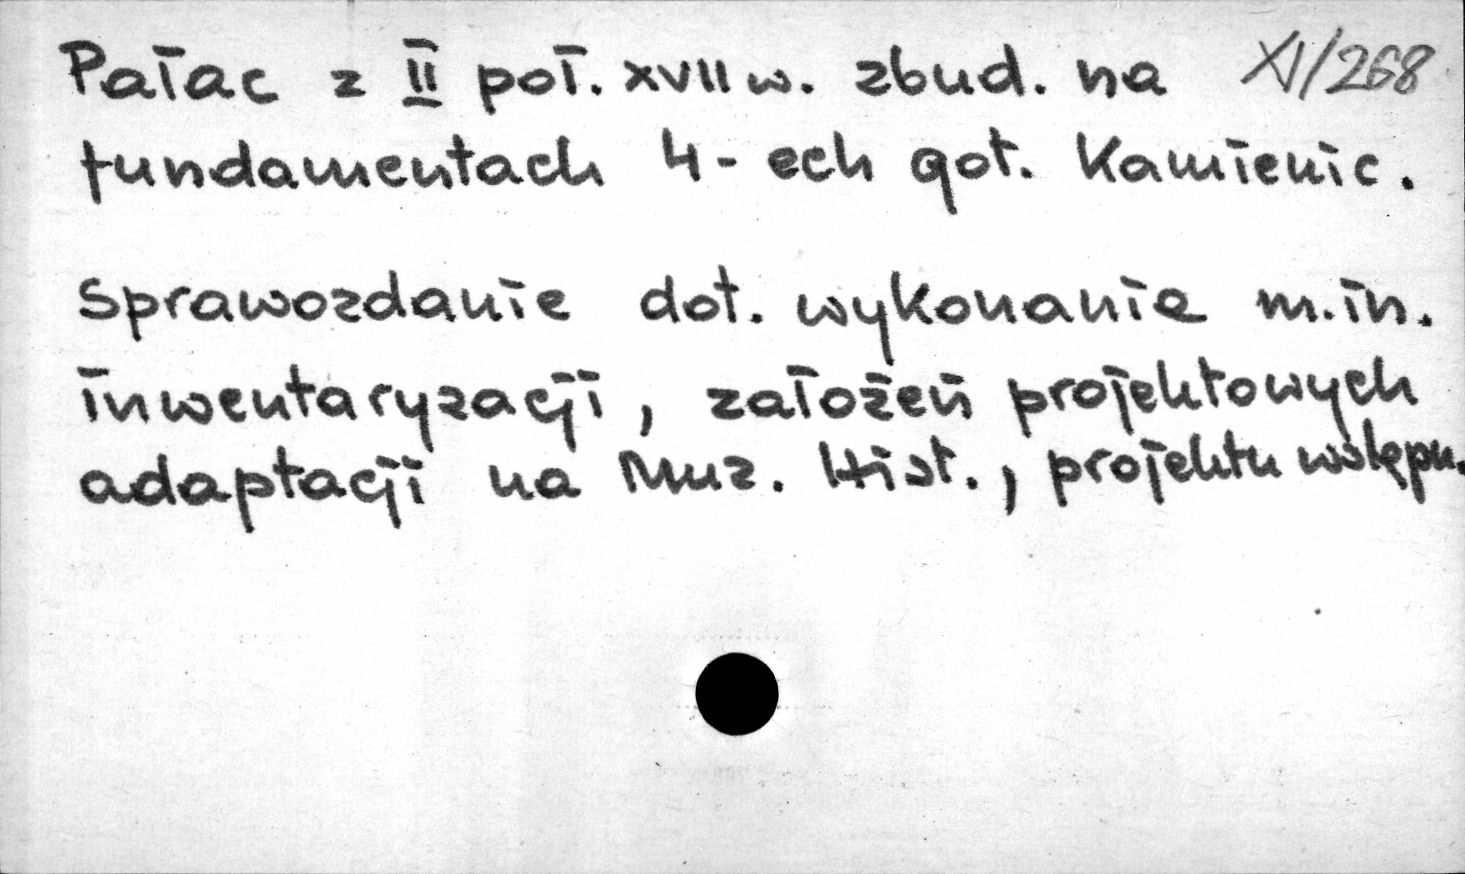 Pałac z II poł. XVII w. zbud. na XI/268
fundamentach 4-ech got. Kamienic.
Sprawozdanie dot. wykonanie m.in.
inwentaryzacji, założeń projektowych
adaptacji na Muz. Hist., projektu wstępn.